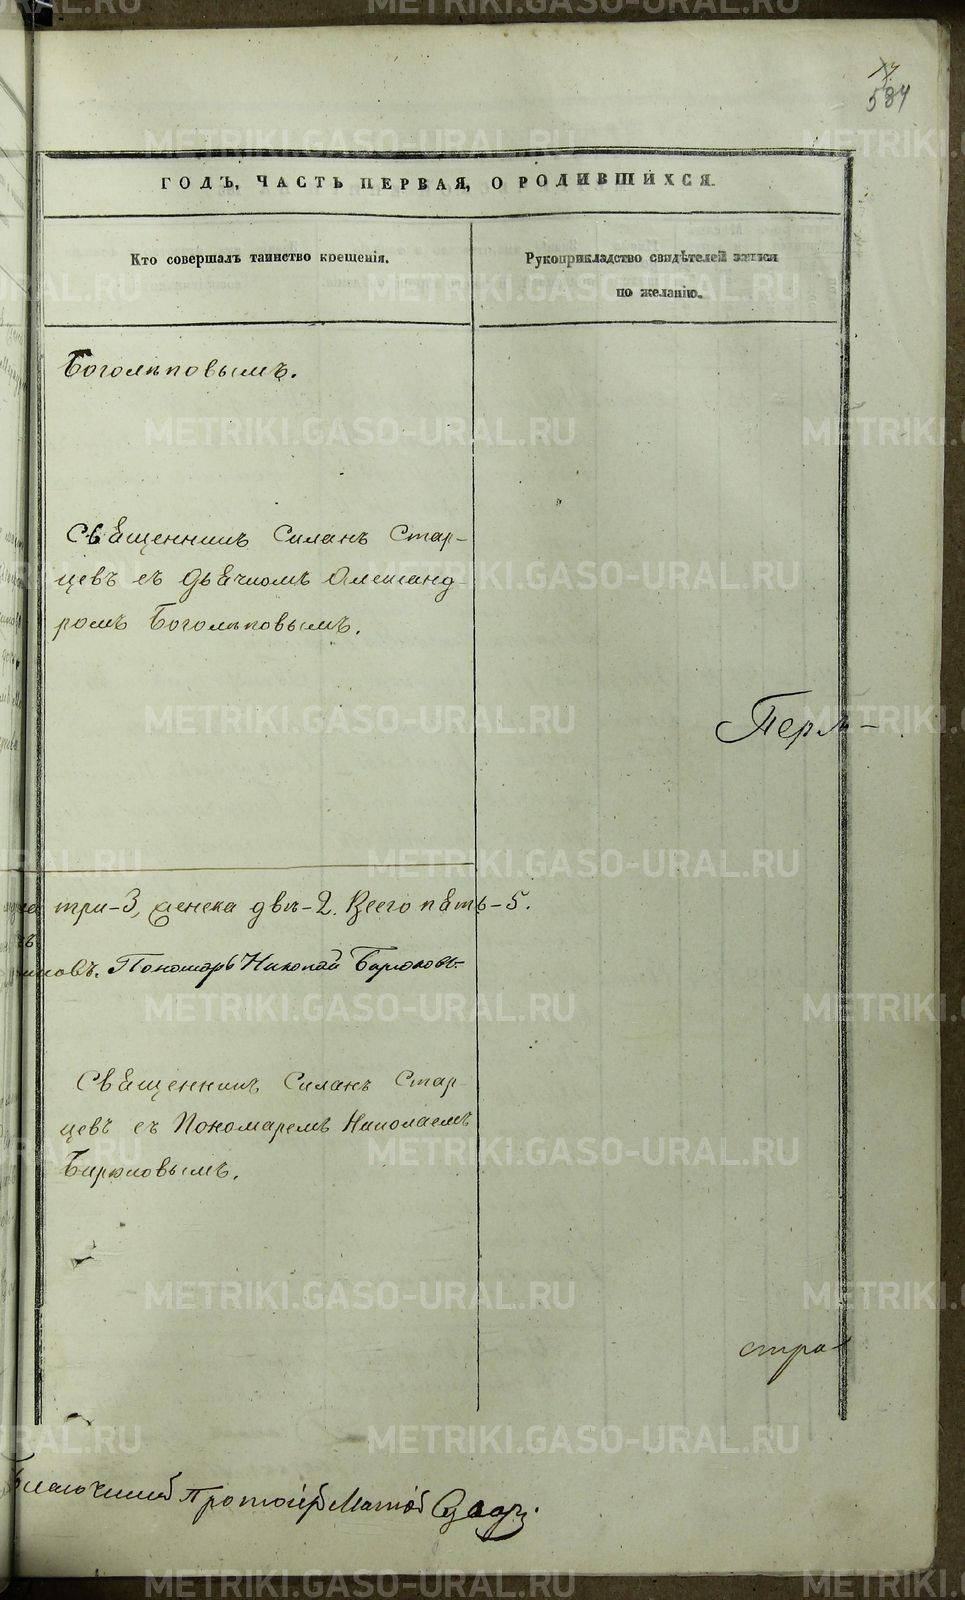 584
ГОДЪ, ЧАСТЬ ПЕРВАЯ, О РОДИВШИХСЯ.
Кто совершалъ таинство крещенія.
Рукоприкладство свидѣтелей записи
по желанію.
Боголѣповымъ.
Священникъ Силанъ Стар-
цевъ съ Дьячкомъ Александ-
ромъ Боголѣповымъ.
Перм-
три-3, женска двѣ-2. Всего пять-5.
Пономарь Николай Бирюковъ.
Священникъ Силанъ Стар-
цевъ съ Пономаремъ Николаемъ
Бирюковымъ.
стра-
Благочинный Протоіерей
METRIKI.GASO-URAL.RU